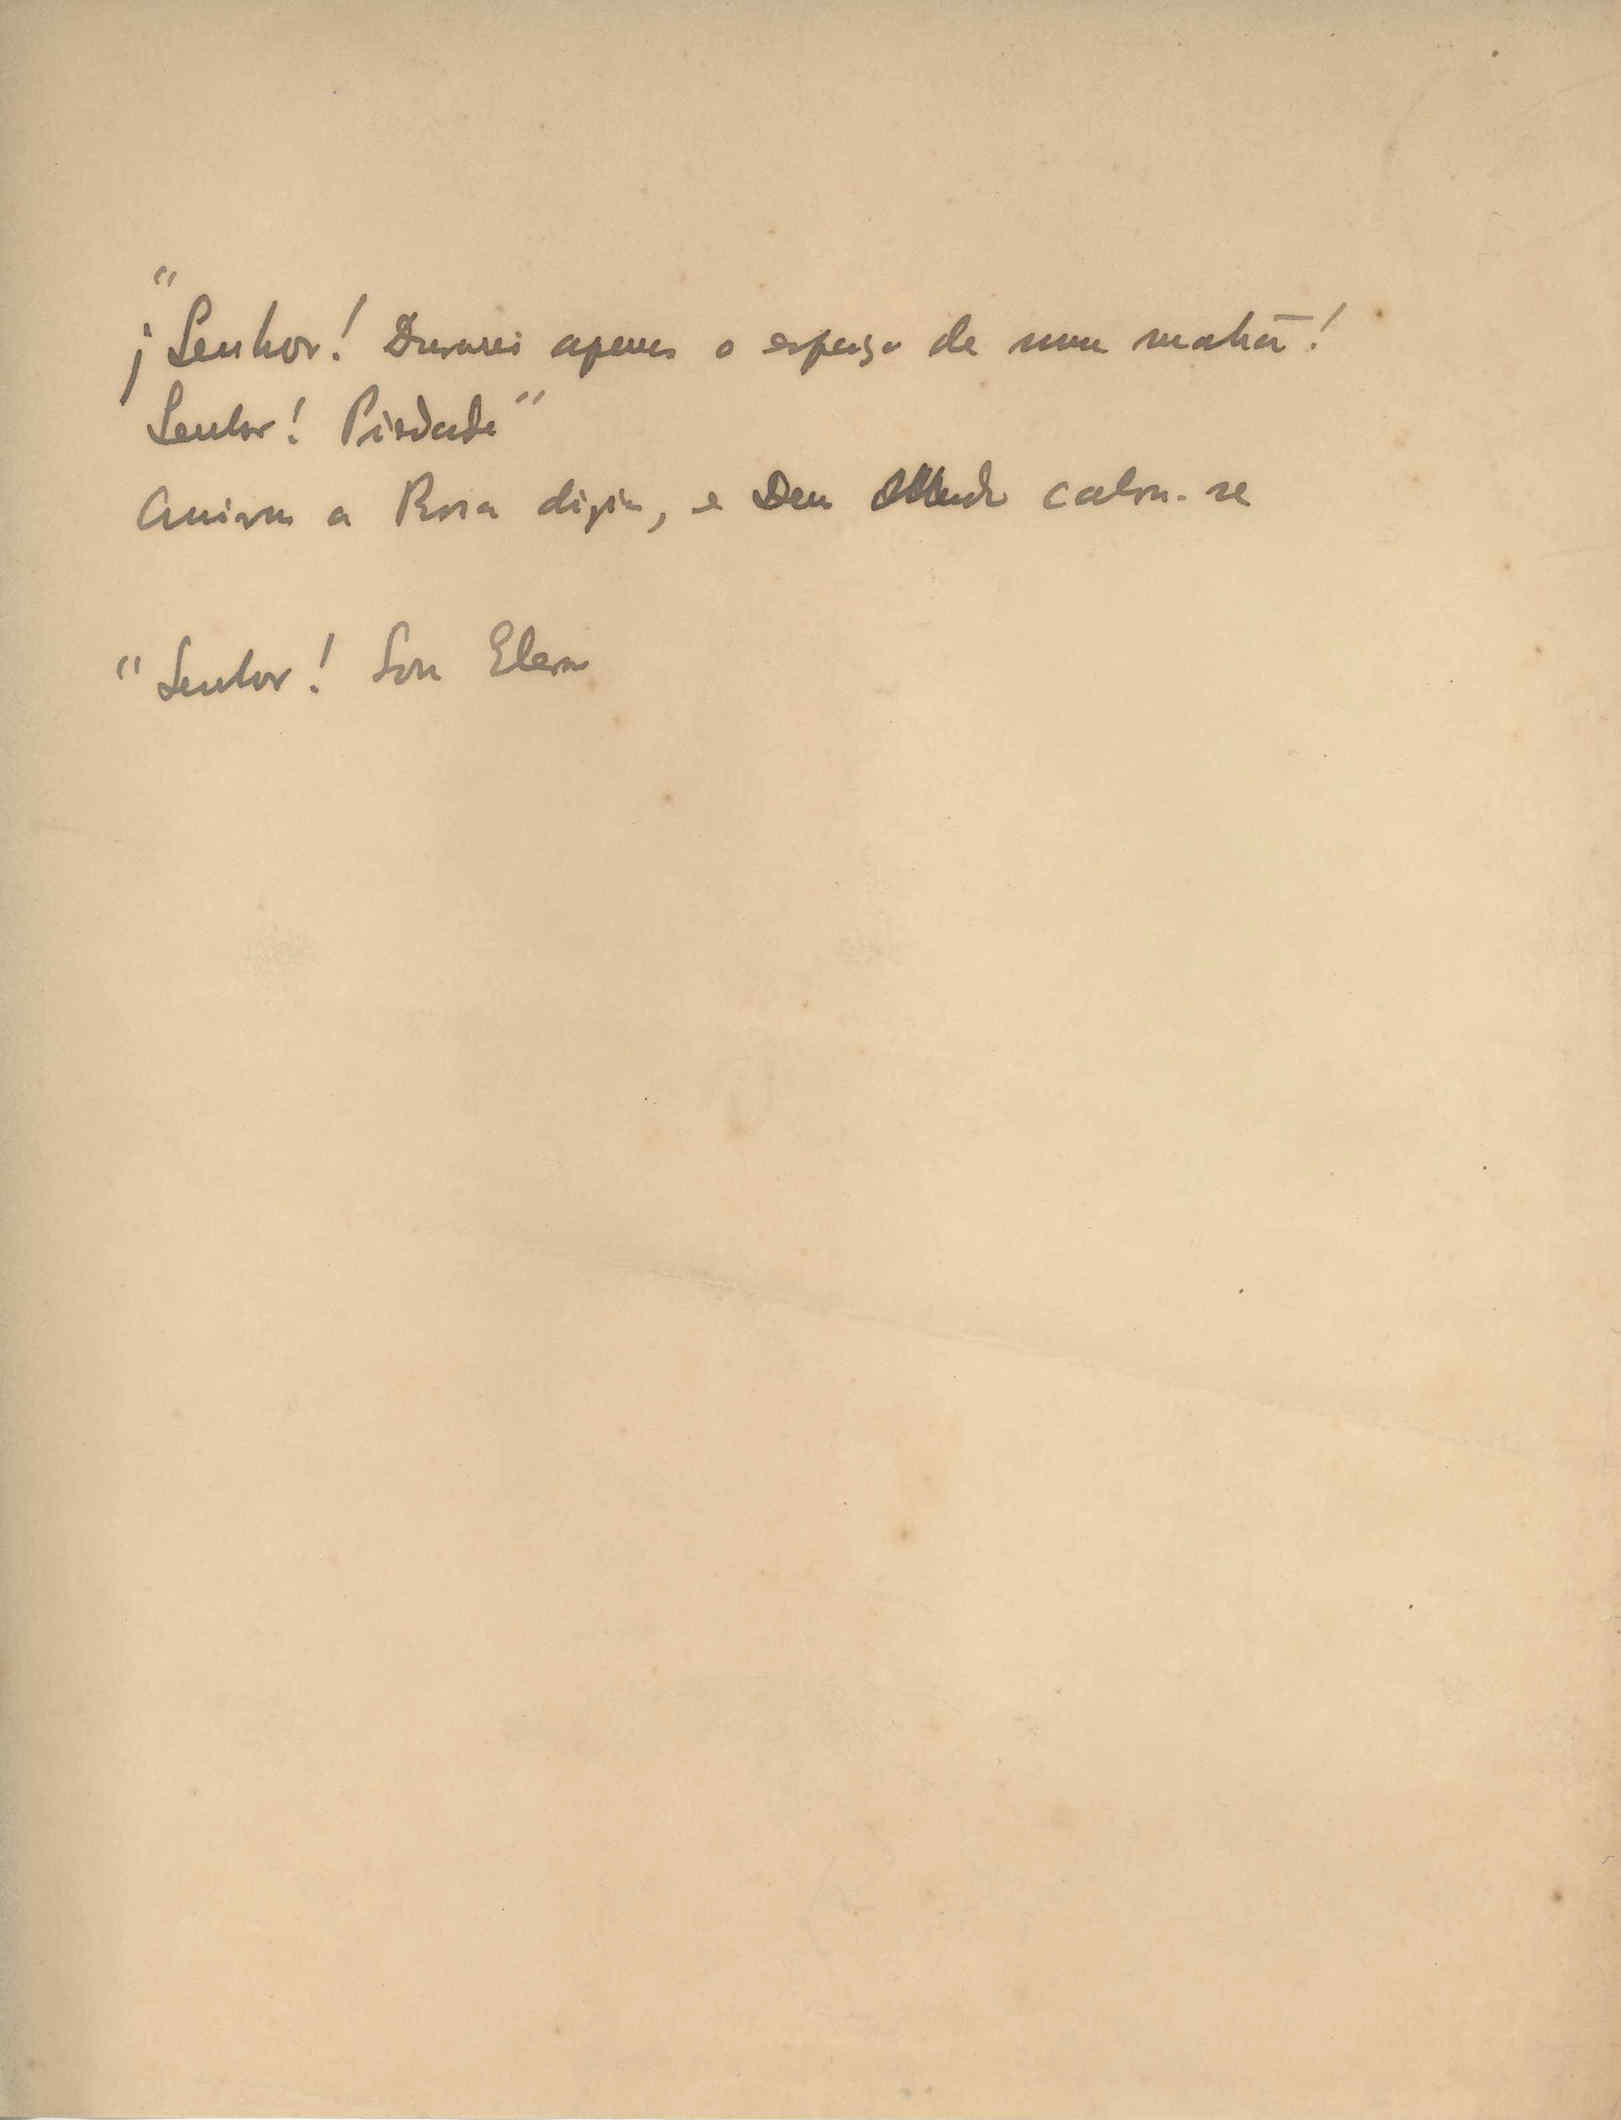 "
¡Senhor! Durarei apenas o espaço de uma mahã!
Senhor! Piedade"
a Rosa dizia, e Deus calou-se
"Senhor! Sou Eterno